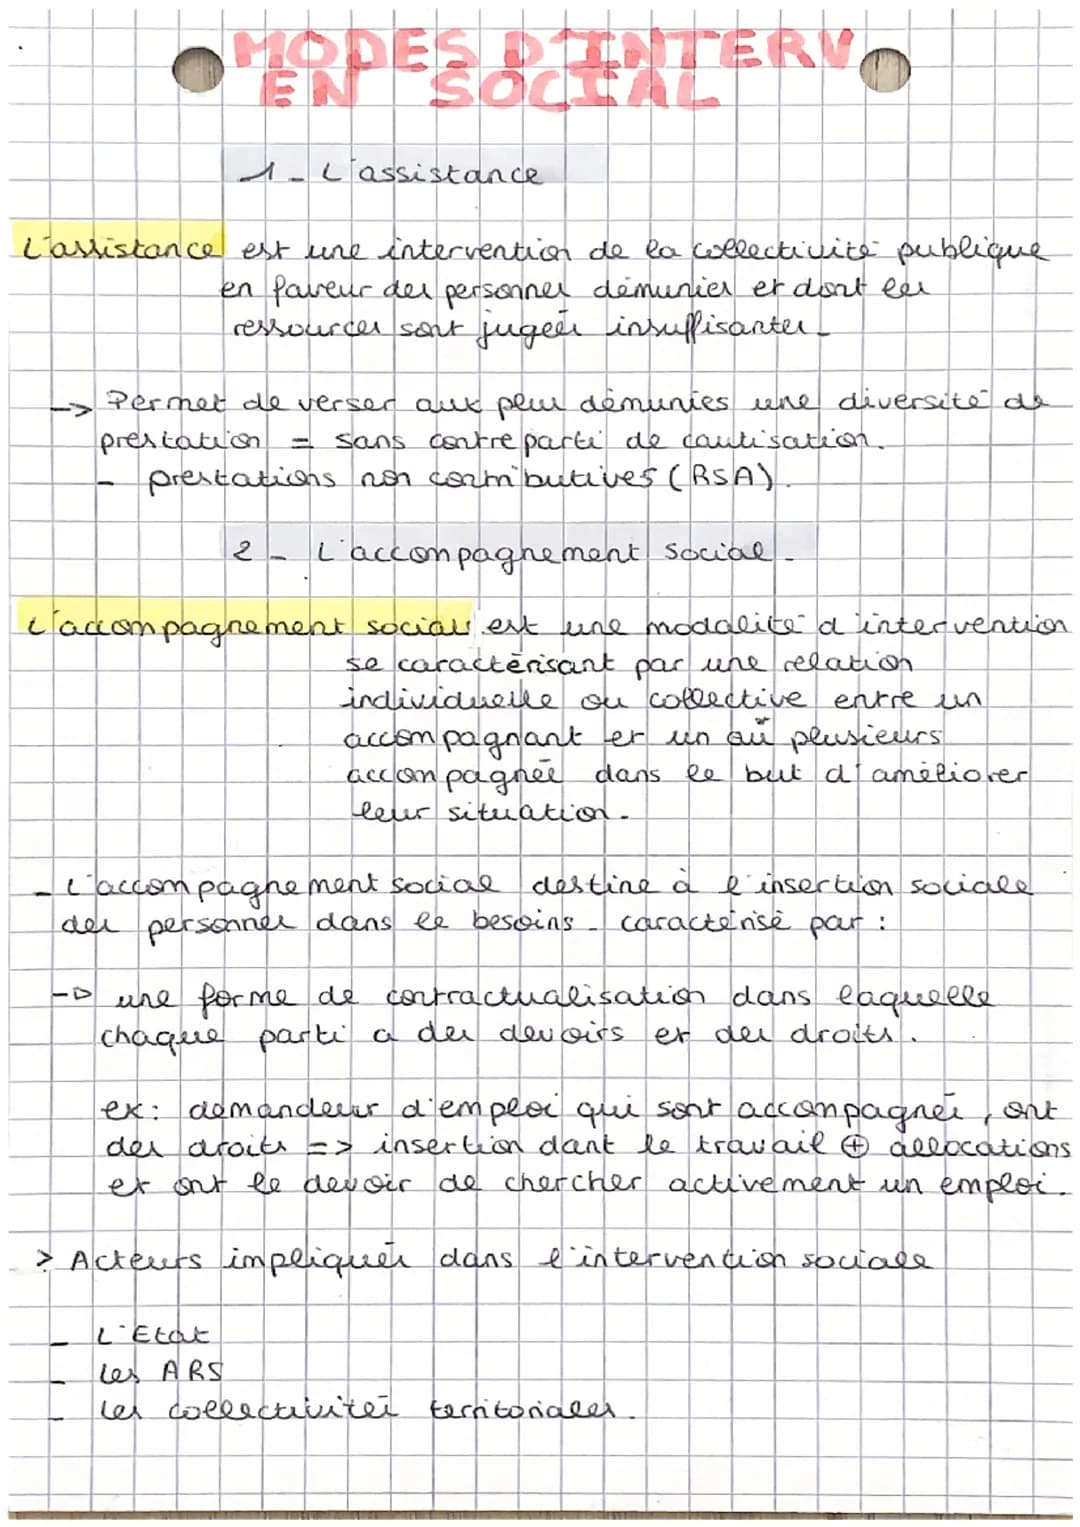 MODES D'INTERV
EN SOCIAL
1 - L'assistance
L'assistance est une intervention de la collectivité publique
en faveur des personnes démunies et dont les
ressources sont jugées insuffisantes.
-> Permet de verser aux plus démunies une diversité de
prestation = sans contre parti de cautisation.
- prestations non contributives (RSA).
2 - L'accompagnement social.
L'accompagnement social est une modalité d'intervention
se caractérisant par une relation
individuelle ou collective entre un
accompagnant et un ou plusieurs
accompagnés dans le but d'améliorer
leur situation.
- L'accompagnement social destine à l'insertion sociale
des personnes dans le besoins - caractérisé par :
-> une forme de contractualisation dans laquelle
chaque parti a des devoirs et des droits.
ex: demandeur d'emploi qui sont accompagnés, ont
des droits => insertion dant le travail ⊕ allocations
et ont le devoir de chercher activement un emploi.
> Acteurs impliqués dans l'intervention sociale
- L'Etat
- Les ARS
- Les collectivités territoriales.